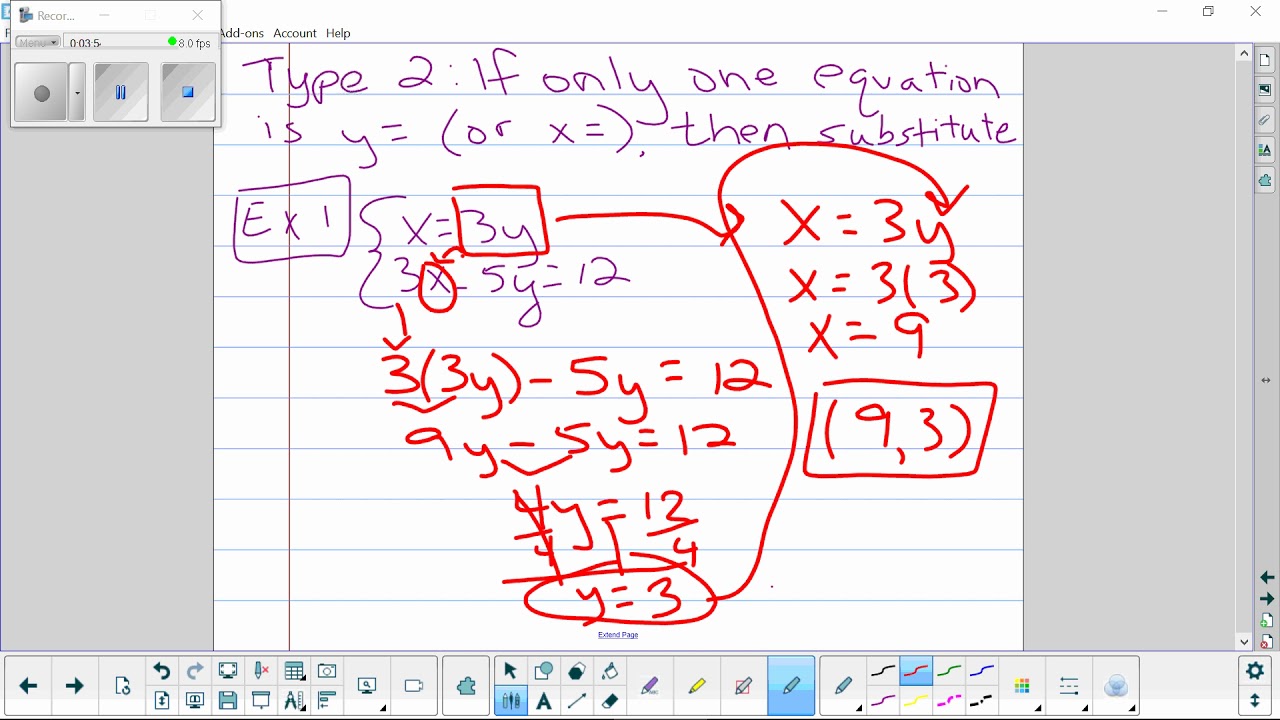 Recor...
Menu
0:03:5
8.0 fps
Add-ons Account Help
Type 2: If only one equation
is y= (or x=), then substitute
Ex 1
x=3y
3x-5y=12
3(3y)-5y=12
9y-5y=12
4y=12
4 4
y=3
x=3y
x=3(3)
x=9
(9,3)
Extend Page